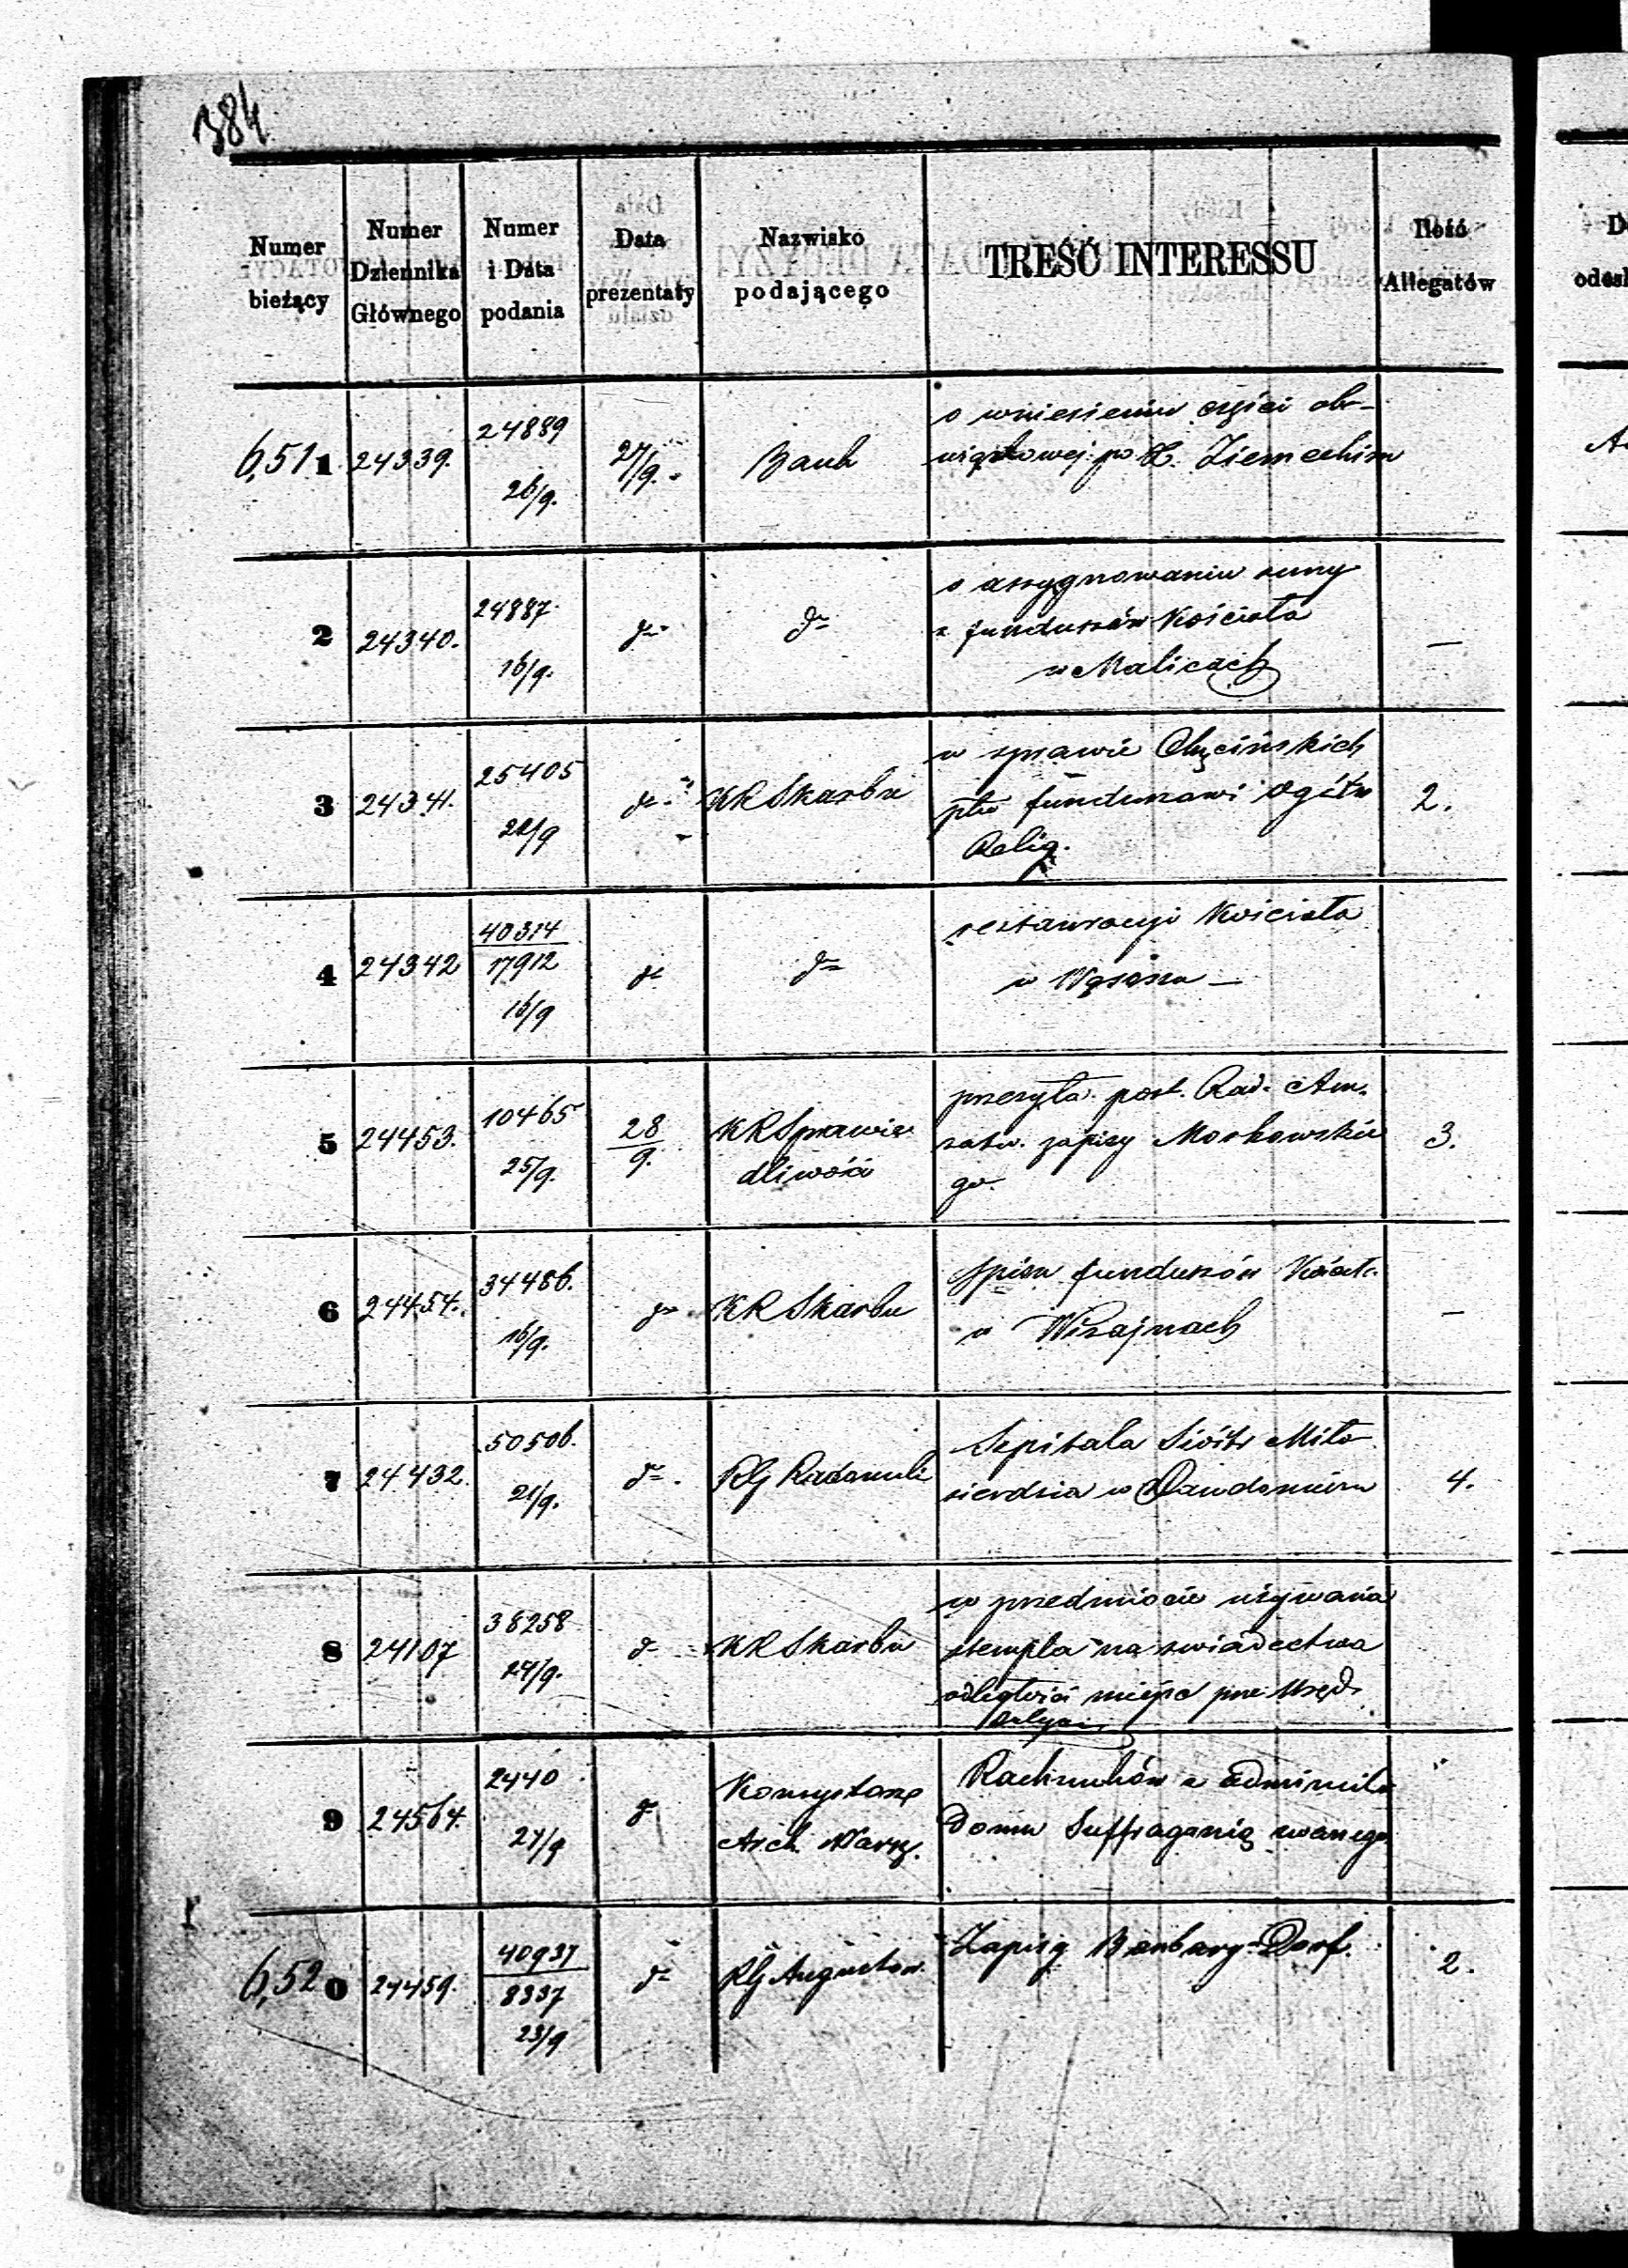 384
Numer bieżący
Numer Dziennika Głównego
Numer i Data podania
Data prezentaty
Nazwisko podającego
TREŚĆ INTERESSU
Ilość Allegatów
6,511 24339. 24889 26/9. 27/9. Bank
o wniesieniu części obo-
wiązkowej po X. Ziemeckim
2 24340. 24887. 16/9. do do
o assygnowaniu sumy
z funduszów Kościoła
w Malicach —
3 24341. 25405 22/9 do KRSkarbu
w sprawie Chęcińskich
pko funduszowi Ogółu 2.
Relig.
4 24342 40314 17912 16/9 do do
restauracyi Kościoła
w Wąsoszu —
5 24453. 10465 25/9. 28/9. KRSprawie
dliwości
przesyła post. Rad. Am.
zatw. zapisy Morkowskie 3.
go.
6 24454. 34486. 16/9. do KRSkarbu
Spisu funduszów Kościoła
w Wiżajnach —
7 24432. 50506. 21/9. do RG Radomski
Szpitala Sióstr Miło
sierdzia w Sandomierzu 4.
8 24107 38258 24/9. do KRSkarbu
w przedmiocie używania
stempla na świadectwa
odległości miejsc
9 24564. 2440 27/9 do Konsystorz
Arch. Warsz.
Rachunków z administro
Domu Suffraganią zwanego
6,520 24459. 40937 8337 23/9 do RG Augustow.
Zapisy 2.